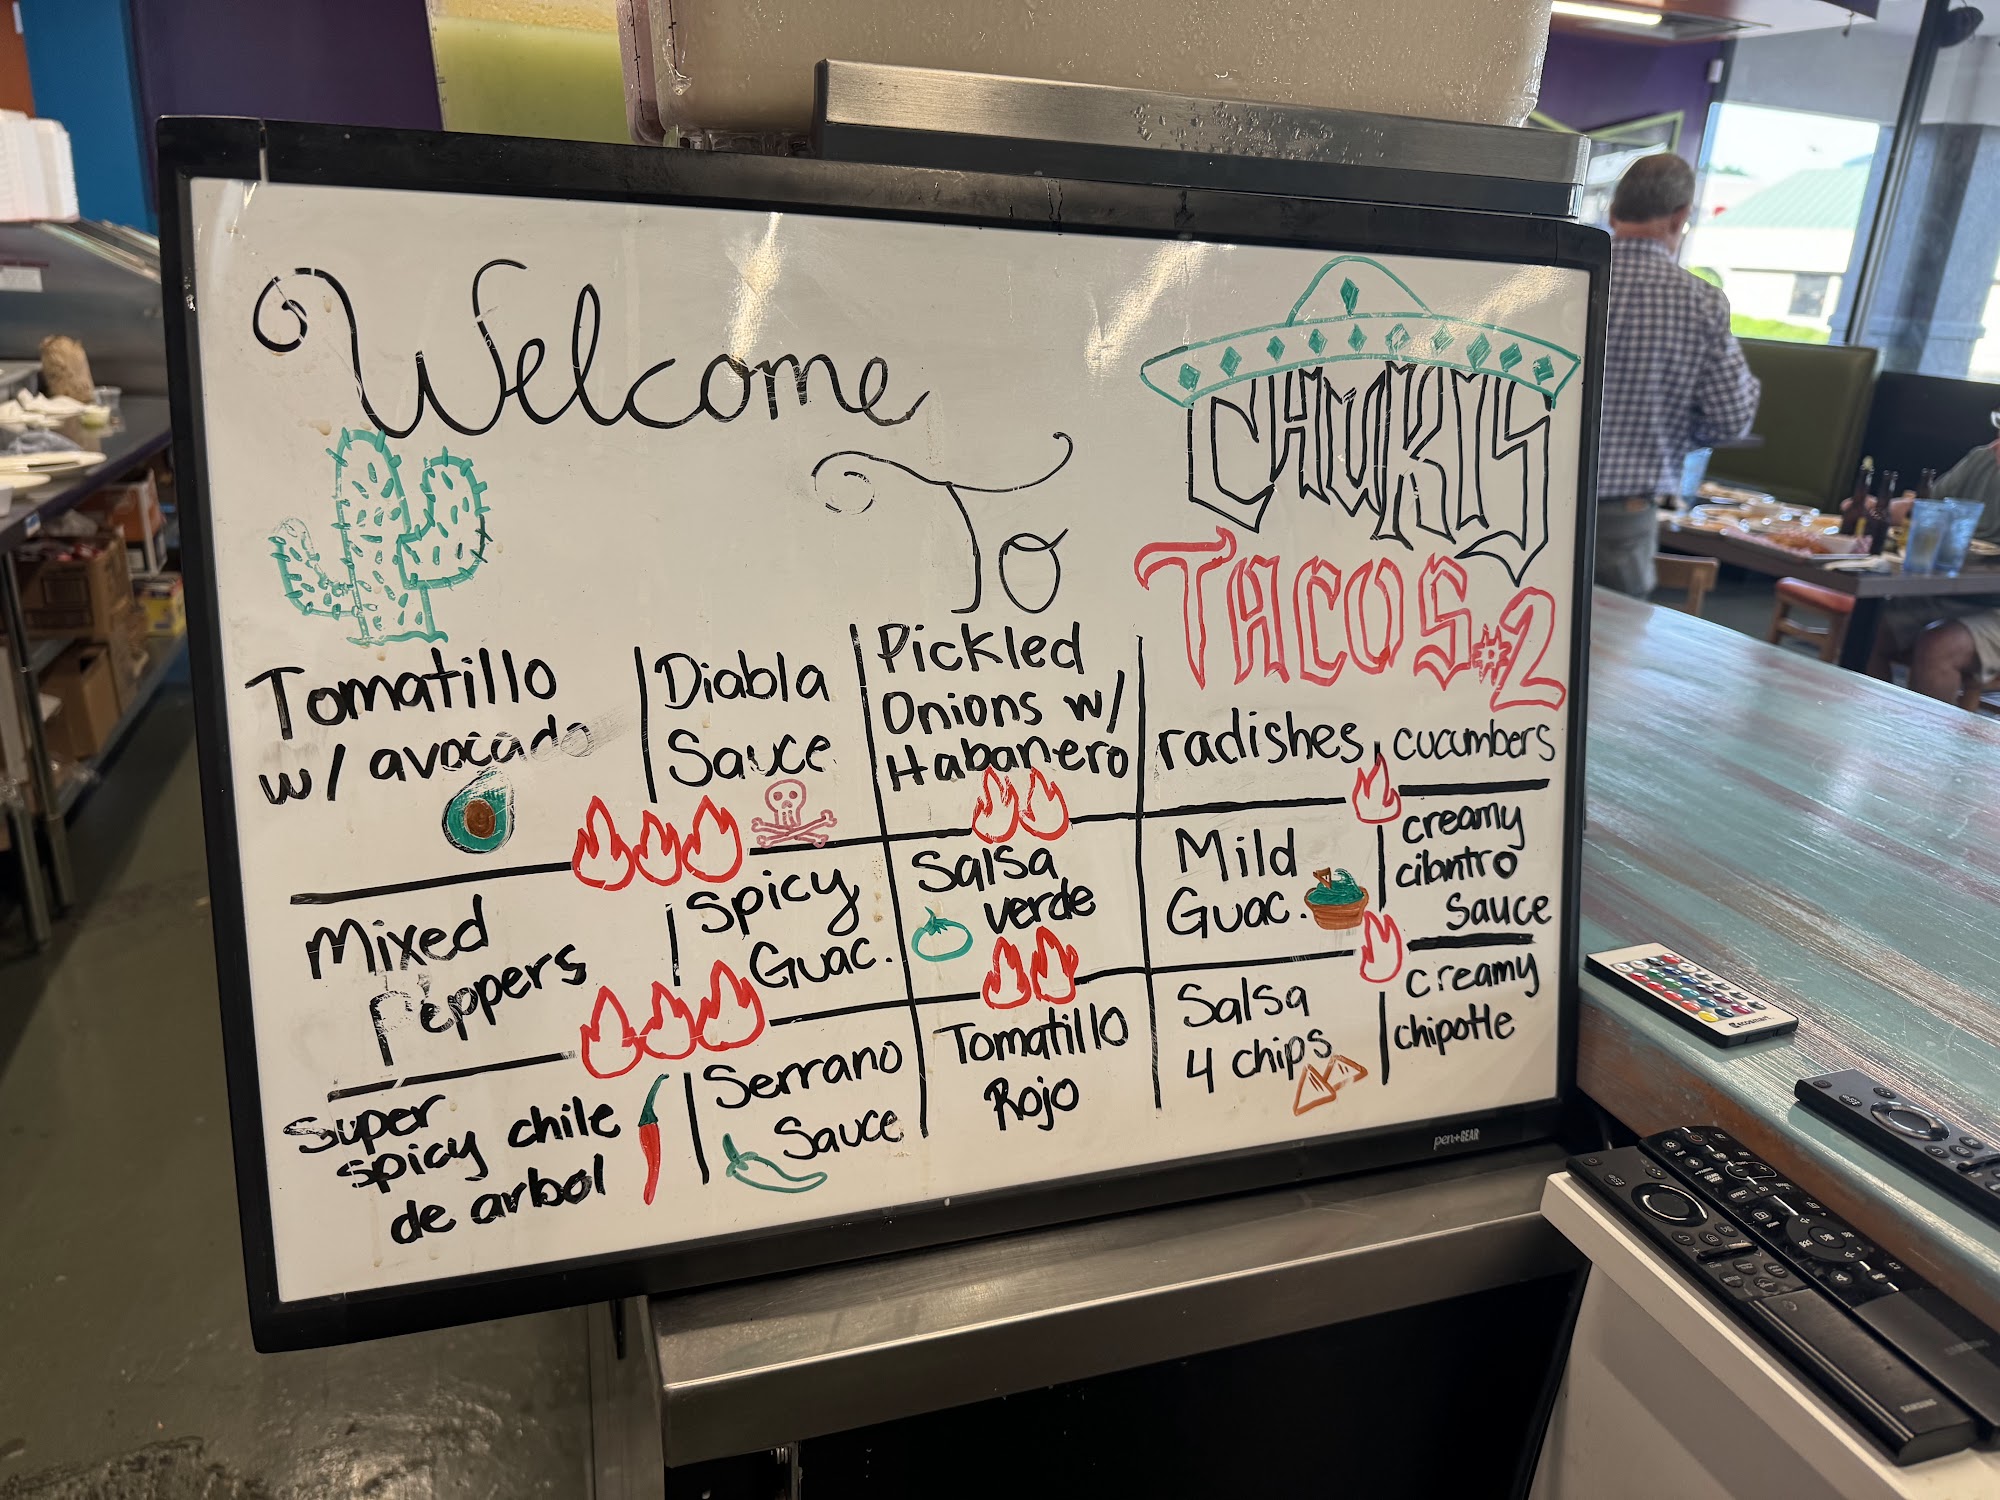 Welcome
To
CHUKIS
TACOS #2
Tomatillo
w/ avocado
Diabla
Sauce
Pickled
Onions w/
Habanero
radishes, cucumbers
Mixed
Peppers
Spicy
Guac.
Salsa
verde
Mild
Guac.
creamy
cilantro
Sauce
Super
spicy chile
de arbol
Serrano
Sauce
Tomatillo
Rojo
Salsa
4 chips
creamy
chipotle
pen+GEAR
ecosmart
SAMSUNG